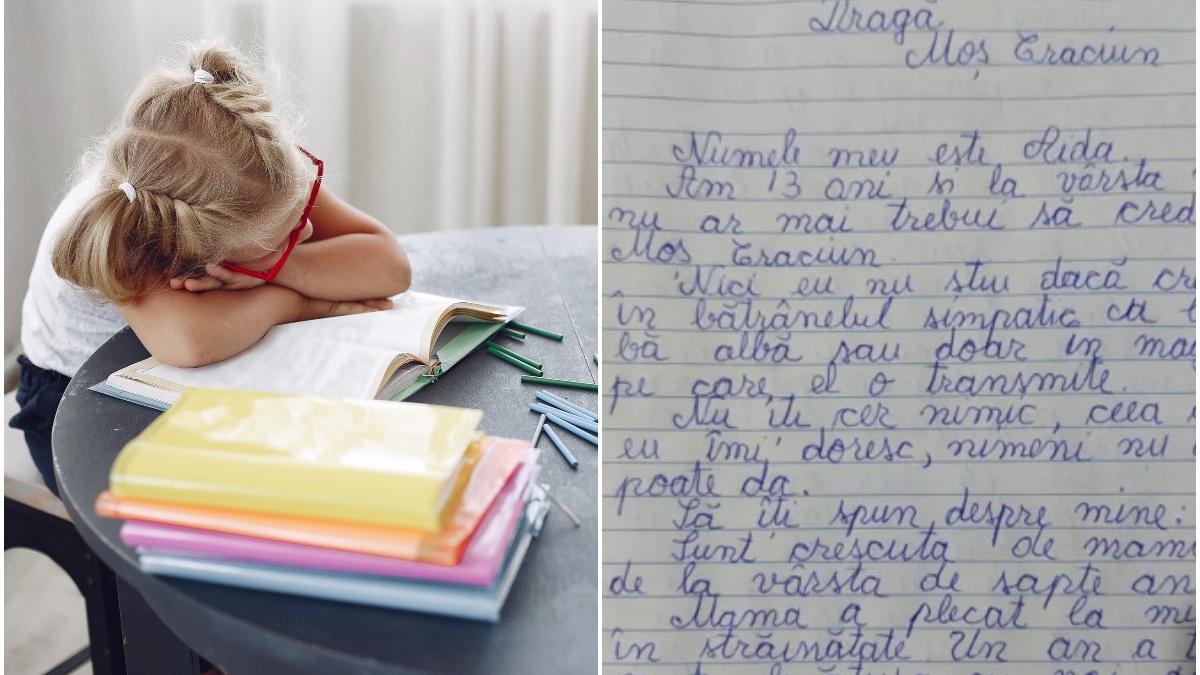 Dragă
Moș Craciun
Numele meu este Aida.
Am 13 ani si la vârsta
nu ar mai trebui să cred
Moș Craciun
Nici eu nu stiu dacă cr
în bătrânelul simpatic cu b
bă albă sau doar in ma
pe care el o transmite.
Nu iti cer nimic, ceea
eu îmi doresc, nimeni nu
poate da.
Să iti spun despre mine:
Sunt crescuta de mam
de la vârsta de sapte an
Mama a plecat la mu
în străinătate Un an a t